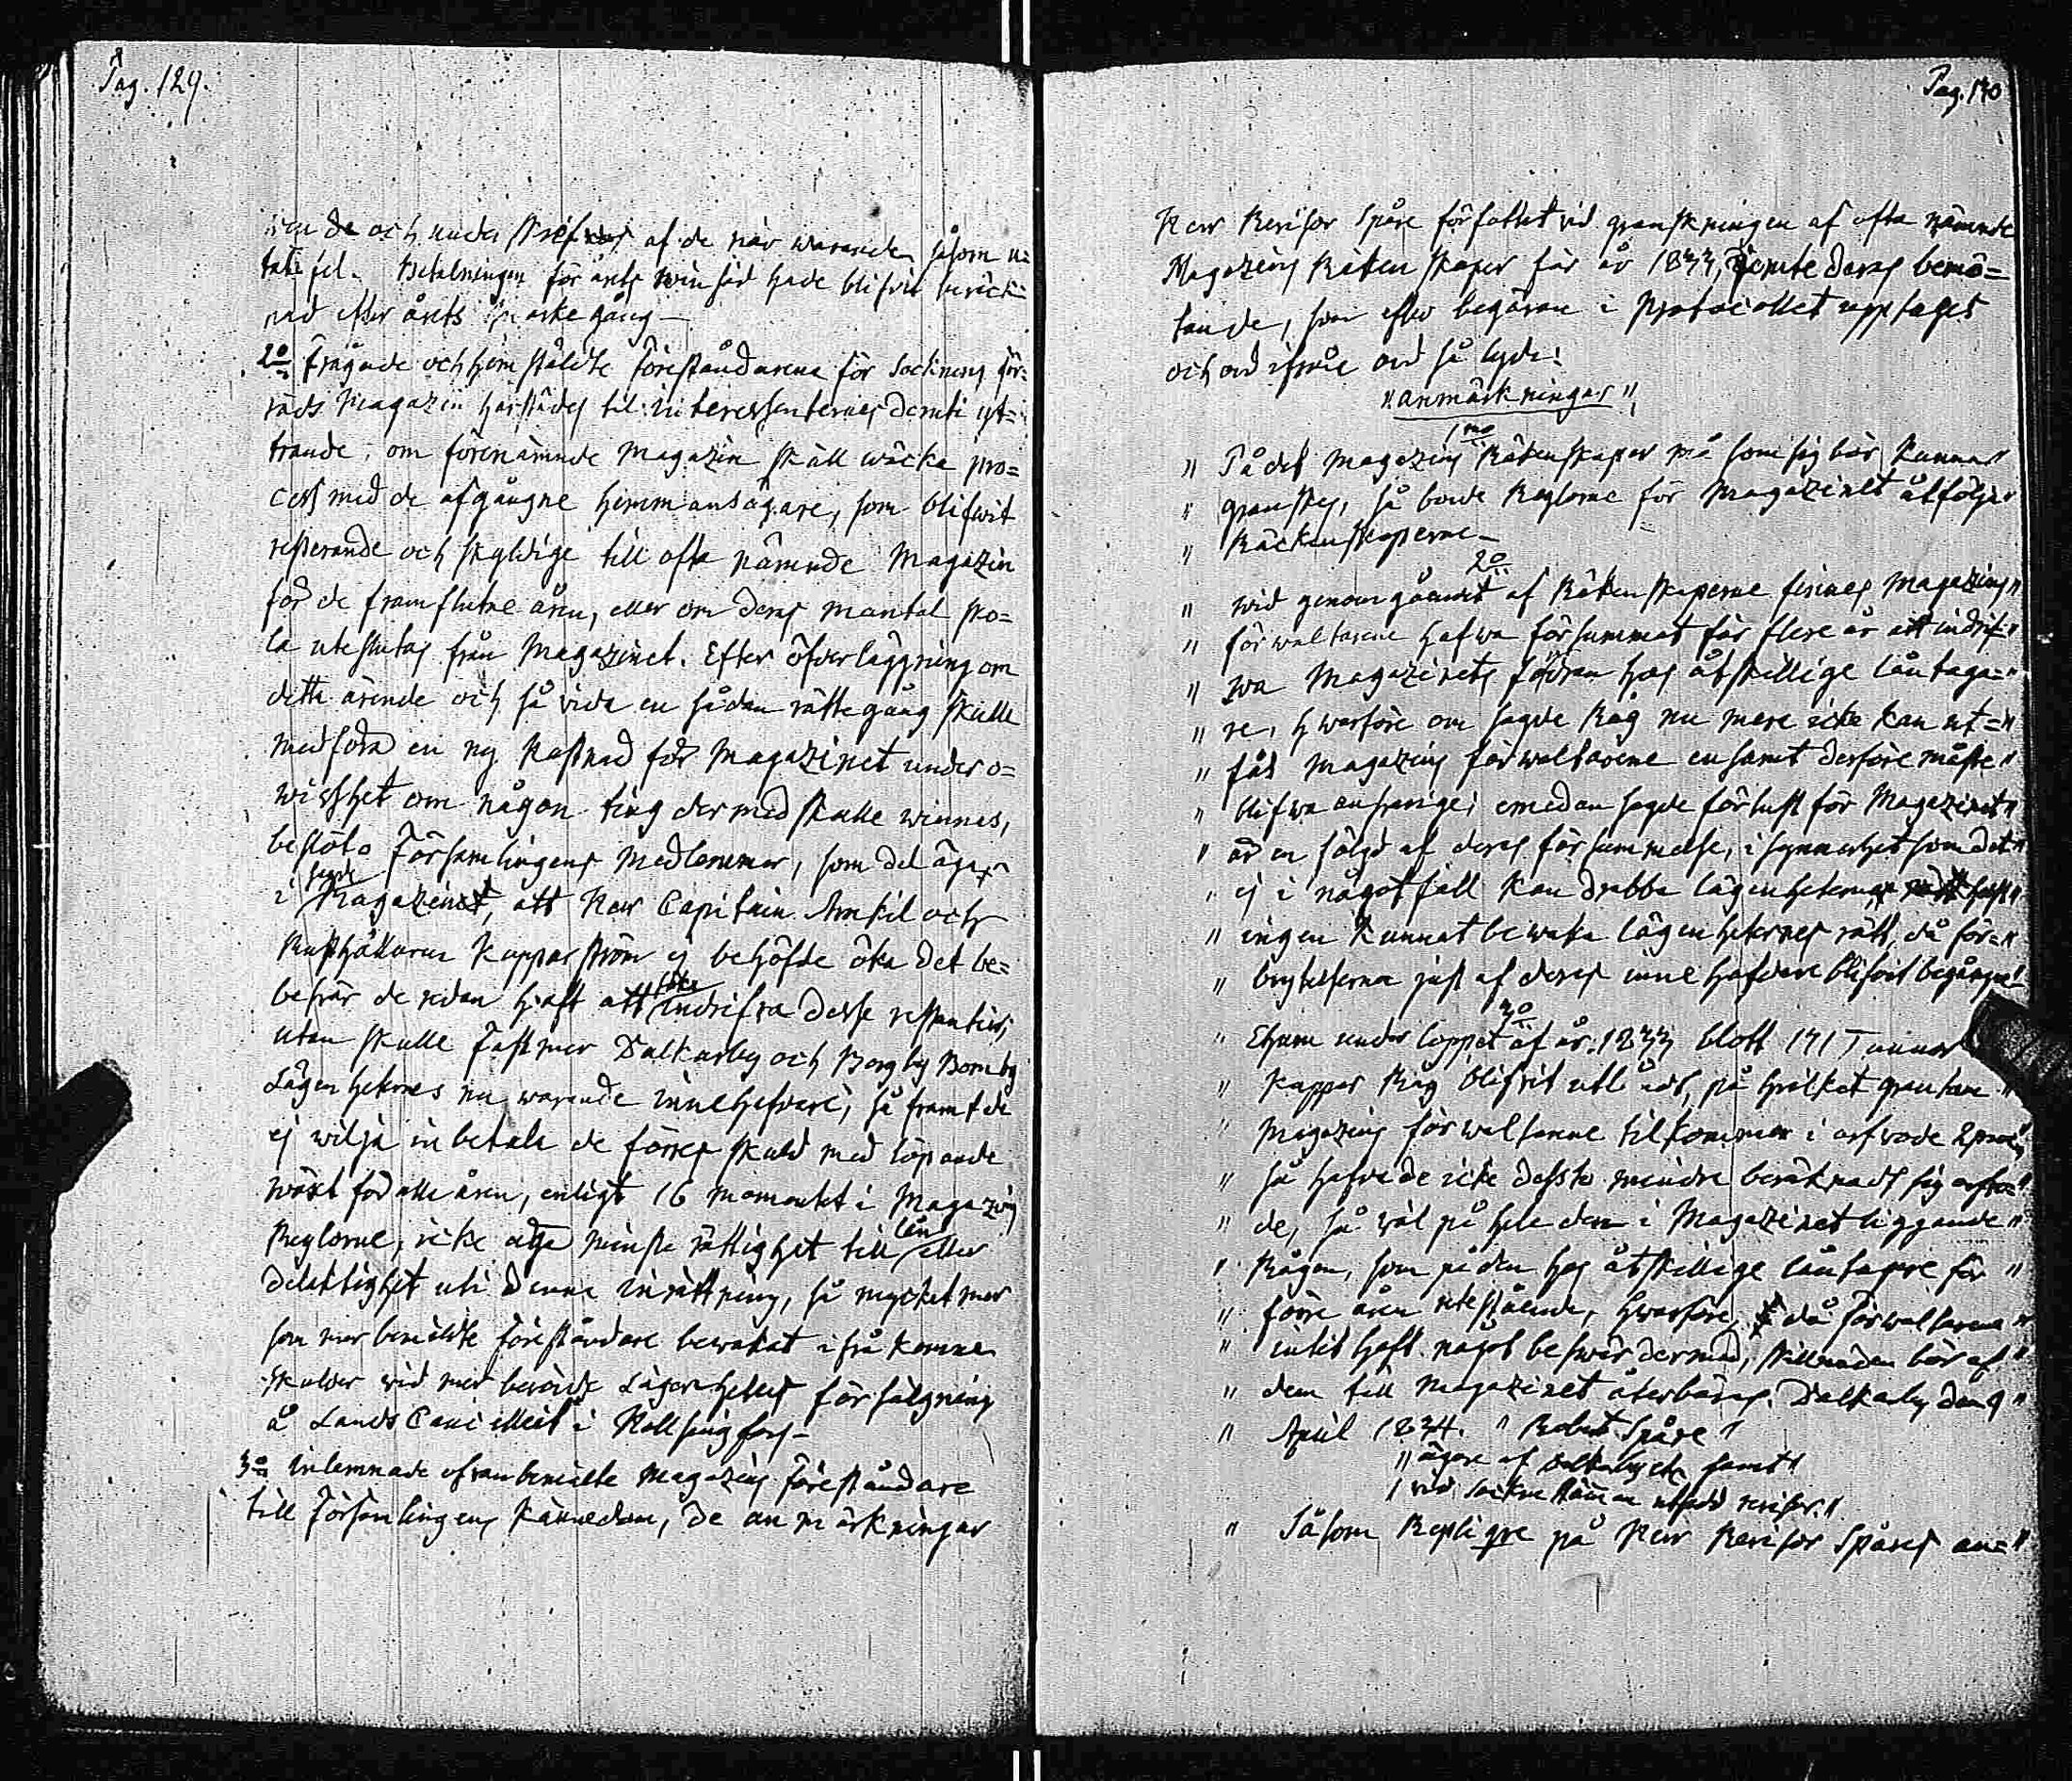 Pag. 129.
och underskrefvos af de när warande såsom u=
Betalningen för årets hade blifvit beräck=
nad efter årets markegång –
2o Frågade och hemstäldte Föreståndarena för Sockning För=
råds Magazin härstädes til interessenternes deruti yt=
trande, om förenämnde Magazin skall wäcka pro=
cess med de afgångne hemmansägare, som blifwit
resterande och skyldige till ofta nämnde Magazin
för de framflutne åren, eller om deras mantal sko=
la uteslutas från Magazinet. Efter öfverläggning om
detta ärende och så vida en sådan rättegång skulle
medföra en ny kostnad för Magazinet under o=
wisshet om någon ting dermed skulle winnas,
beslöto Församlingens Medlemmar, som del äga
i sagde Magazinet, att Herr Capitain Amkil och
Rusthållaren Kopparström ej behöfde öka det be=
svär de redan haft att söka indrifva desse restantier,
utan skulle Dalkarby och Borgby Bomby
Lägenheternes nu warande innehafvare, så framt de
ej wilja inbetala de förres skuld med löpande
wäxt för alla åren, enligt 16 momentet i Magazins
Reglorne, icke äga minsta rättighet till lån eller
delaktighet uti denna inrättning, så mycket mer
som merbemälte Föreståndare bewakat ifrå komne
skulder wid mer berörde Lägenheters försäljning
å Lands Cancelliet i Hellsingfors –
3o inlemnade ofvanbemälte Magazins Föreståndare
till Församlingens kännedom, de anmärkningar
Pag. 130
Herr Revisor Spåre författat vid granskningen af ofta nämnde
Magazins Räkenskaper för år 1833, jemte deras bemö=
tande, som efter begäran i Protocollet upptages
och ord ifrån ord så lyda:
"Anmärkningar"
1mo
" På det Magazins Räkenskaper må som sig bör kunna "
" granskas, så borde Reglorne för Magazinet åtfölja "
" Räckenskaperne –
2o
" wid genomgåendet af Räkenskaperne finnes Magazins "
" förwaltarene hafwa försummat för flere år att indrif- "
" wa Magazinets fodran hos åtskillige låntaga= "
" re, hwarföre om sagde Råg nu mera icke kan ut= "
" fås Magazins förwaltarene ensamt derföre måste "
" blifwa answarige; emedan sagde förlust för Magazinet "
" är en följd af deras försummelse, i synnerhet som det "
" ej i något fall kan drabba lägenheterna
" ingen kunnat bewaka lägenheternes rätt, då för= "
" brytelserna just af deras innehafvare blifvit begångne!
3o
" Ehuru under loppet af år 1833 blott 171 Tunnor
" Kappar Råg blifvit utlånt, på hvilket quantum "
" Magazins förwaltarene tilkommer i arfvode 2 proc, "
" så hafva de icke desto mindre beräknadt sig arfvo= "
" de, så wäl på hela den i Magazinet liggande "
" Rågen, som på den hos åtskillige låntagare för "
" förre åren utestående, hwarföre, då förwaltarena "
" intet haft något beswär dermed, skillnaden bör af "
" dem till Magazinet återbäras. Dalkarby den 9 "
" April 1834. " Robert Spåre "
" ägare af Dalkarby samt "
" wid Sockne stämman utsedd revisor. "
" Såsom Replique på Herr Revisor Spåres an= "